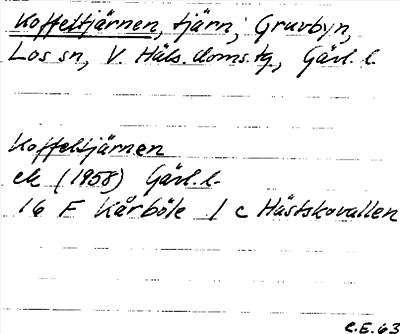 Koffeltjärnen, tjärn, Gruvbyn,
Los sn, V. Häls. doms.tg., Gävl. l.
Koffeltjärnen
ek (1958) Gävl. l.
16 F Kårböle 1 c Hästskovallen
C.E. 63